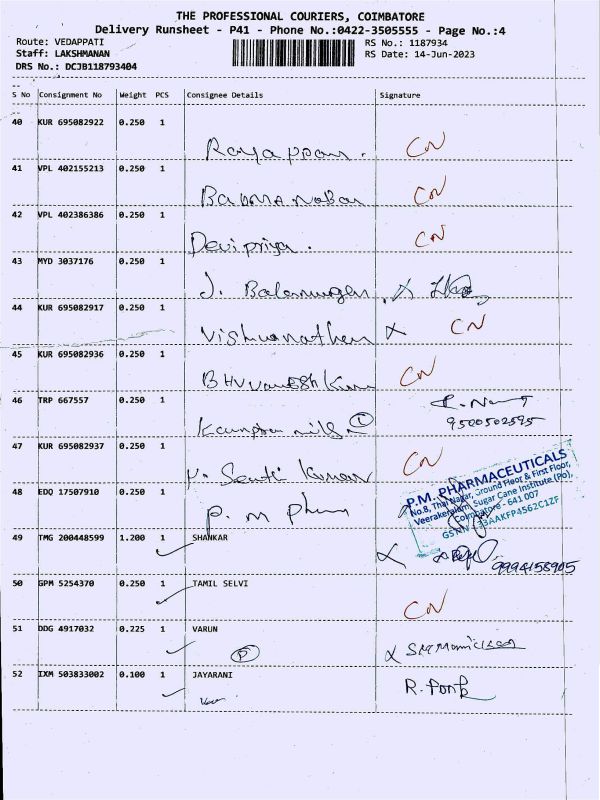 THE PROFESSIONAL COURIERS, COIMBATORE
Delivery Runsheet - P41 - Phone No.:0422-3505555 - Page No.:4
Route: VEDAPPATI RS No.: 1187934
Staff: LAKSHMANAN RS Date: 14-Jun-2023
DRS No.: DCJB118793404
S No Consignment No Weight PCS Consignee Details Signature
40 KUR 695082922 0.250 1
Rayappan. CN
41 VPL 402155213 0.250 1
CN
42 VPL 402386386 0.250 1
Devipriya. CN
43 MYD 3037176 0.250 1
J. Balamurugan X
44 KUR 695082917 0.250 1
Vishwanathan X CN
45 KUR 695082936 0.250 1
Bhuvanesh Kum CN
46 TRP 667557 0.250 1
1
9500502595
47 KUR 695082937 0.250 1
Kumar CN
48 EDQ 17507910 0.250 1
P. m
P.M. PHARMACEUTICALS
No.8, Thai Nagar, Ground Floor & First Floor,
Veerakeralam, Sugar Cane Institute (Po),
Coimbatore - 641 007
33AAKFP4562C1ZF
49 TMG 200448599 1.200 1 SHANKAR
X 9994158905
50 GPM 5254370 0.250 1 TAMIL SELVI
CN
51 DDG 4917032 0.225 1 VARUN
P X
52 IXM 503833002 0.100 1 JAYARANI